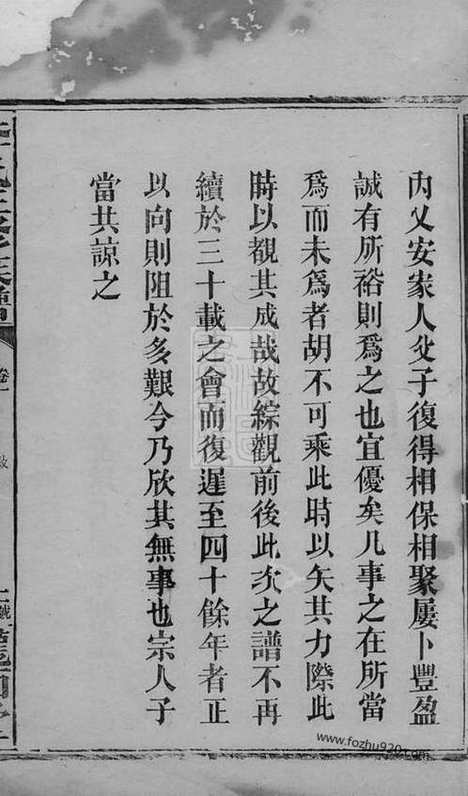 內乂安家人父子復得相保相聚屢卜豐盈
誠有所裕則為之也宜優矣凡事之在所當
為而未為者胡不可乘此時以矢其力際此
時以觀其成哉故綜觀前後此次之譜不再
續於三十載之會而復遲至四十餘年者正
以向則阻於多艱今乃欣其無事也宗人子
當共諒之
卷一
www.fozhu920.com